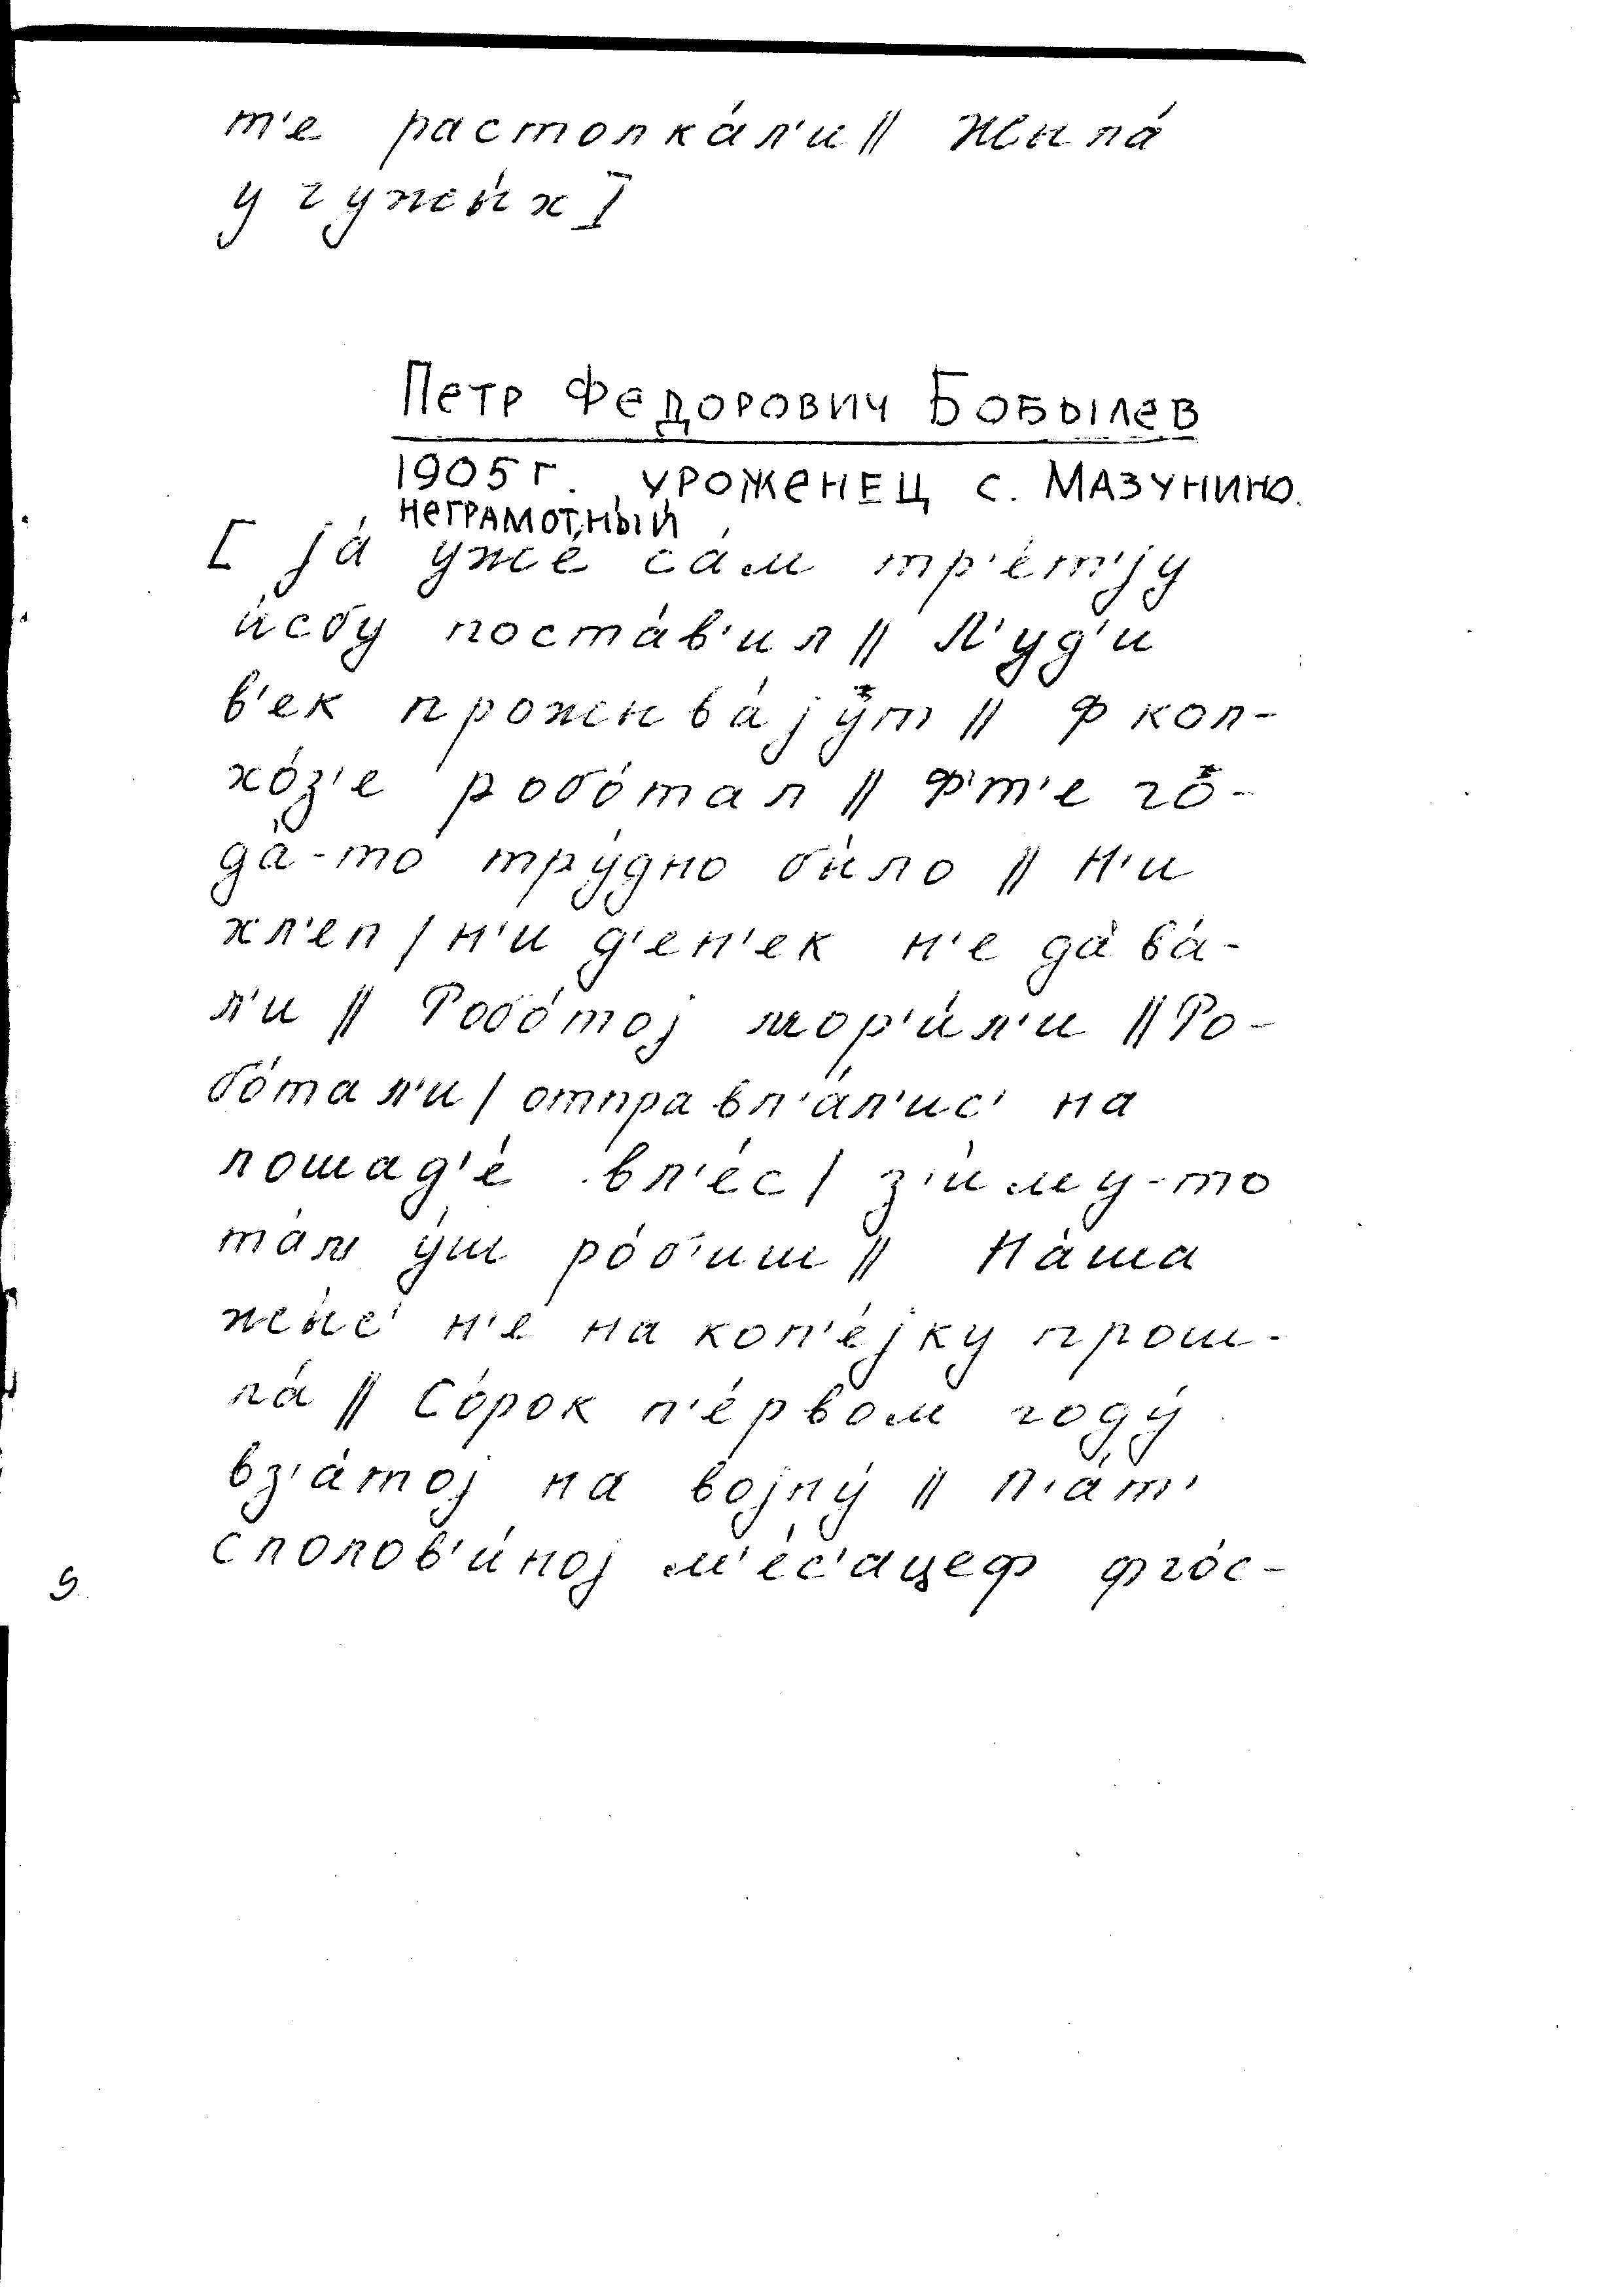 т'е растолка́л'и || Жыла́
у чужы́х]
Петр Федорович Бобылев
1905 г. уроженец с. Мазунино.
неграмотный
[ jа́ уже́ са́м тр'е́т'jу
и́сбу поста́в'ил || Л'у́д'и
в'ек прожыва́jут || Ф кол-
хо́з'е робо́тал || Ф'т'е го-
да́-то тру́дно бы́ло || Н'и
хл'еп / н'и д'ен'ек н'е дава́-
л'и || Робо́тоj мор'и́л'и || Ро-
бо́тал'и / отправл'а́л'ис' на
лошад'е́ вл'е́с / з'и́му-то
та́м у́ш ро́б'иш || На́ша
жы́с' н'е на коп'е́jку прош-
ла́ || Со́рок п'е́рвом году́
вз'а́тоj на воjну́ || П'а́т'
сполов'и́ноj м'е́с'ацеф фго́с-
9